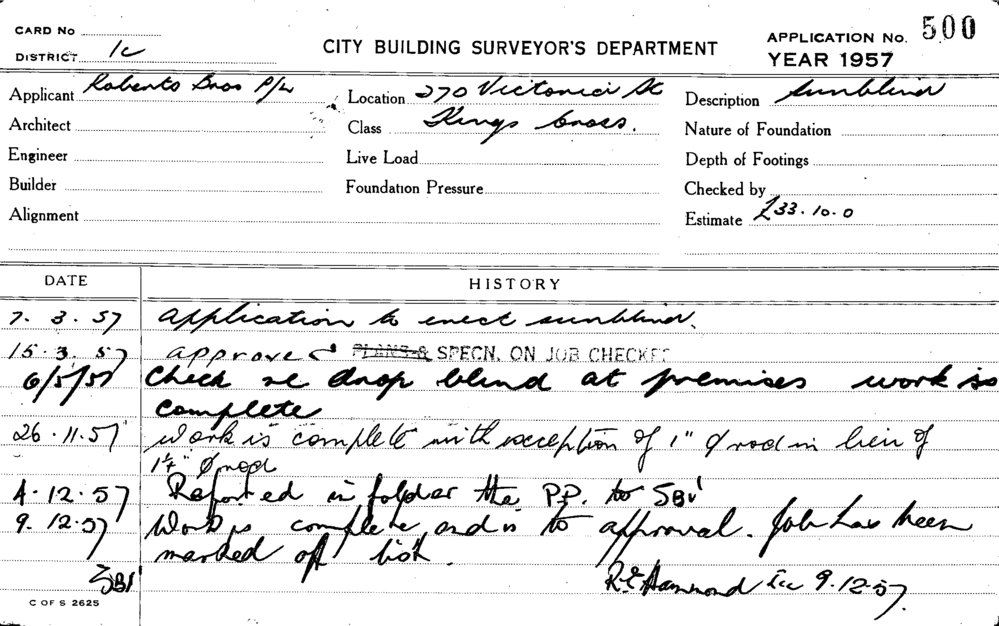 CARD No
DISTRICT 1c
CITY BUILDING SURVEYOR'S DEPARTMENT
APPLICATION No. 500
YEAR 1957
Applicant Roberts Bros P/L
Location 270 Victoria St
Description sunblind
Architect
Class Kings Cross.
Nature of Foundation
Engineer
Live Load
Depth of Footings
Builder
Foundation Pressure
Checked by
Alignment
Estimate £33.10.0
DATE HISTORY
7. 3. 57 Application to erect sunblind.
15. 3. 57 approved PLANS & SPECN. ON JOB CHECKED
6/5/57 Check re drop blind at premises work is
complete
26. 11. 57 Work is complete with exception of 1" ø rod in lieu of
1¼" ø rod
4. 12. 57 Reported in folder the P.P. to SBI
9. 12. 57 Work is complete and is to approval. Job has been
marked off list.
SBI
R.E. Hammond 9.12.57.
C OF S 2625